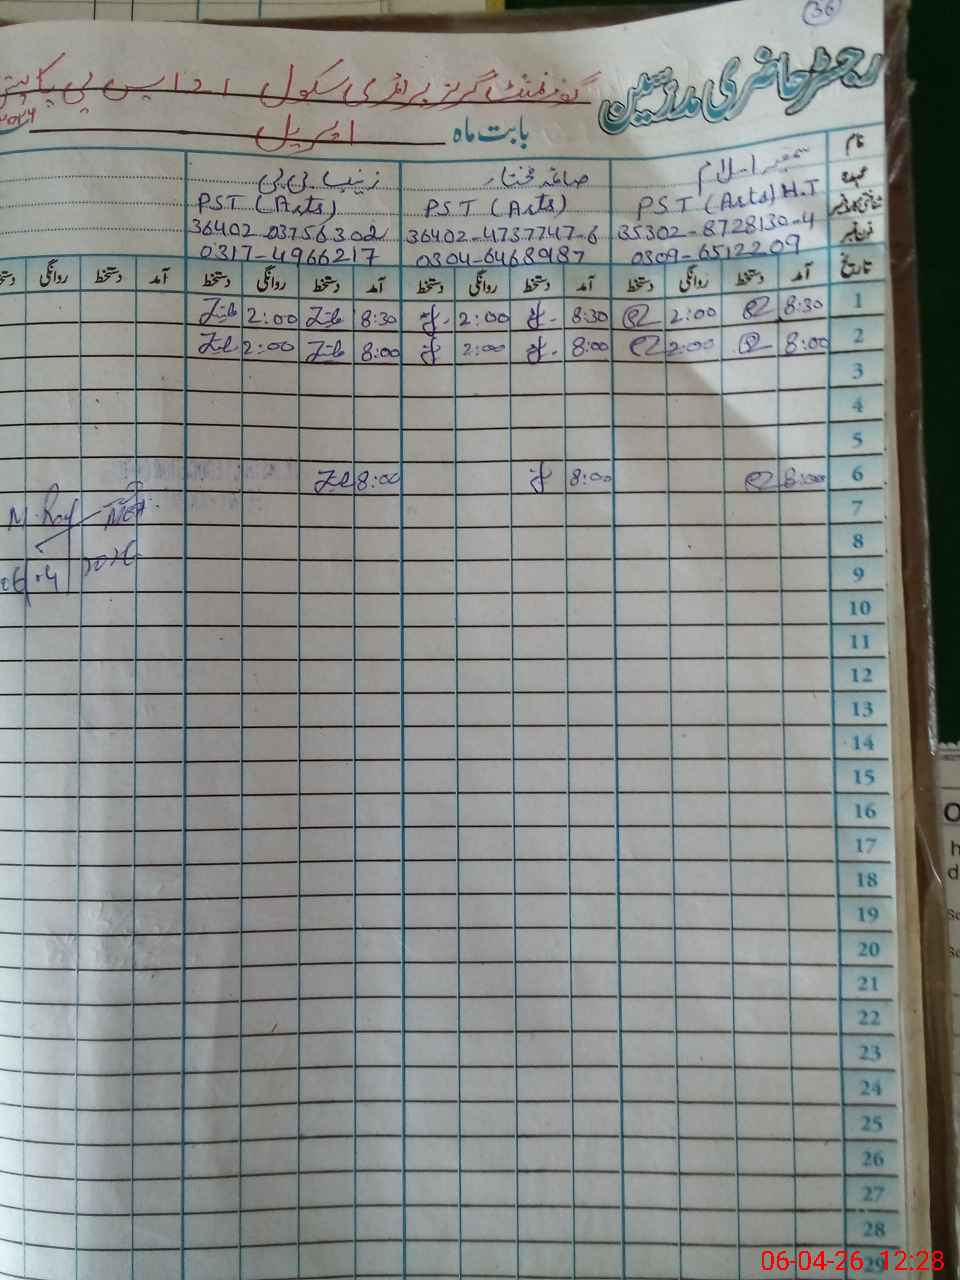 36
رجسٹر حاضری مدرسین
گورنمنٹ گرلز پرائمری سکول
بابت ماہ اپریل
نام سمیہ اسلام صائمہ مختار زینب بی بی
عہدہ PST (Arts) H.T PST (Arts) PST (Arts)
شناختی کارڈ نمبر 35302-8728130-4 36402-4737747-6 36402-0375630-2
فون نمبر 0309-6512209 0304-6468987 0317-4966217
تاریخ آمد دستخط روانگی دستخط آمد دستخط روانگی دستخط آمد دستخط روانگی دستخط آمد دستخط روانگی دستخط
1 8:30 2:00 8:30 2:00 8:30 2:00
2 8:00 2:00 8:00 2:00 8:00 2:00
3
4
5
6 8:00 8:00 8:00
7
8
9
10
11
12
13
14
15
16
17
18
19
20
21
22
23
24
25
26
27
28
29
06-04-26 12:28